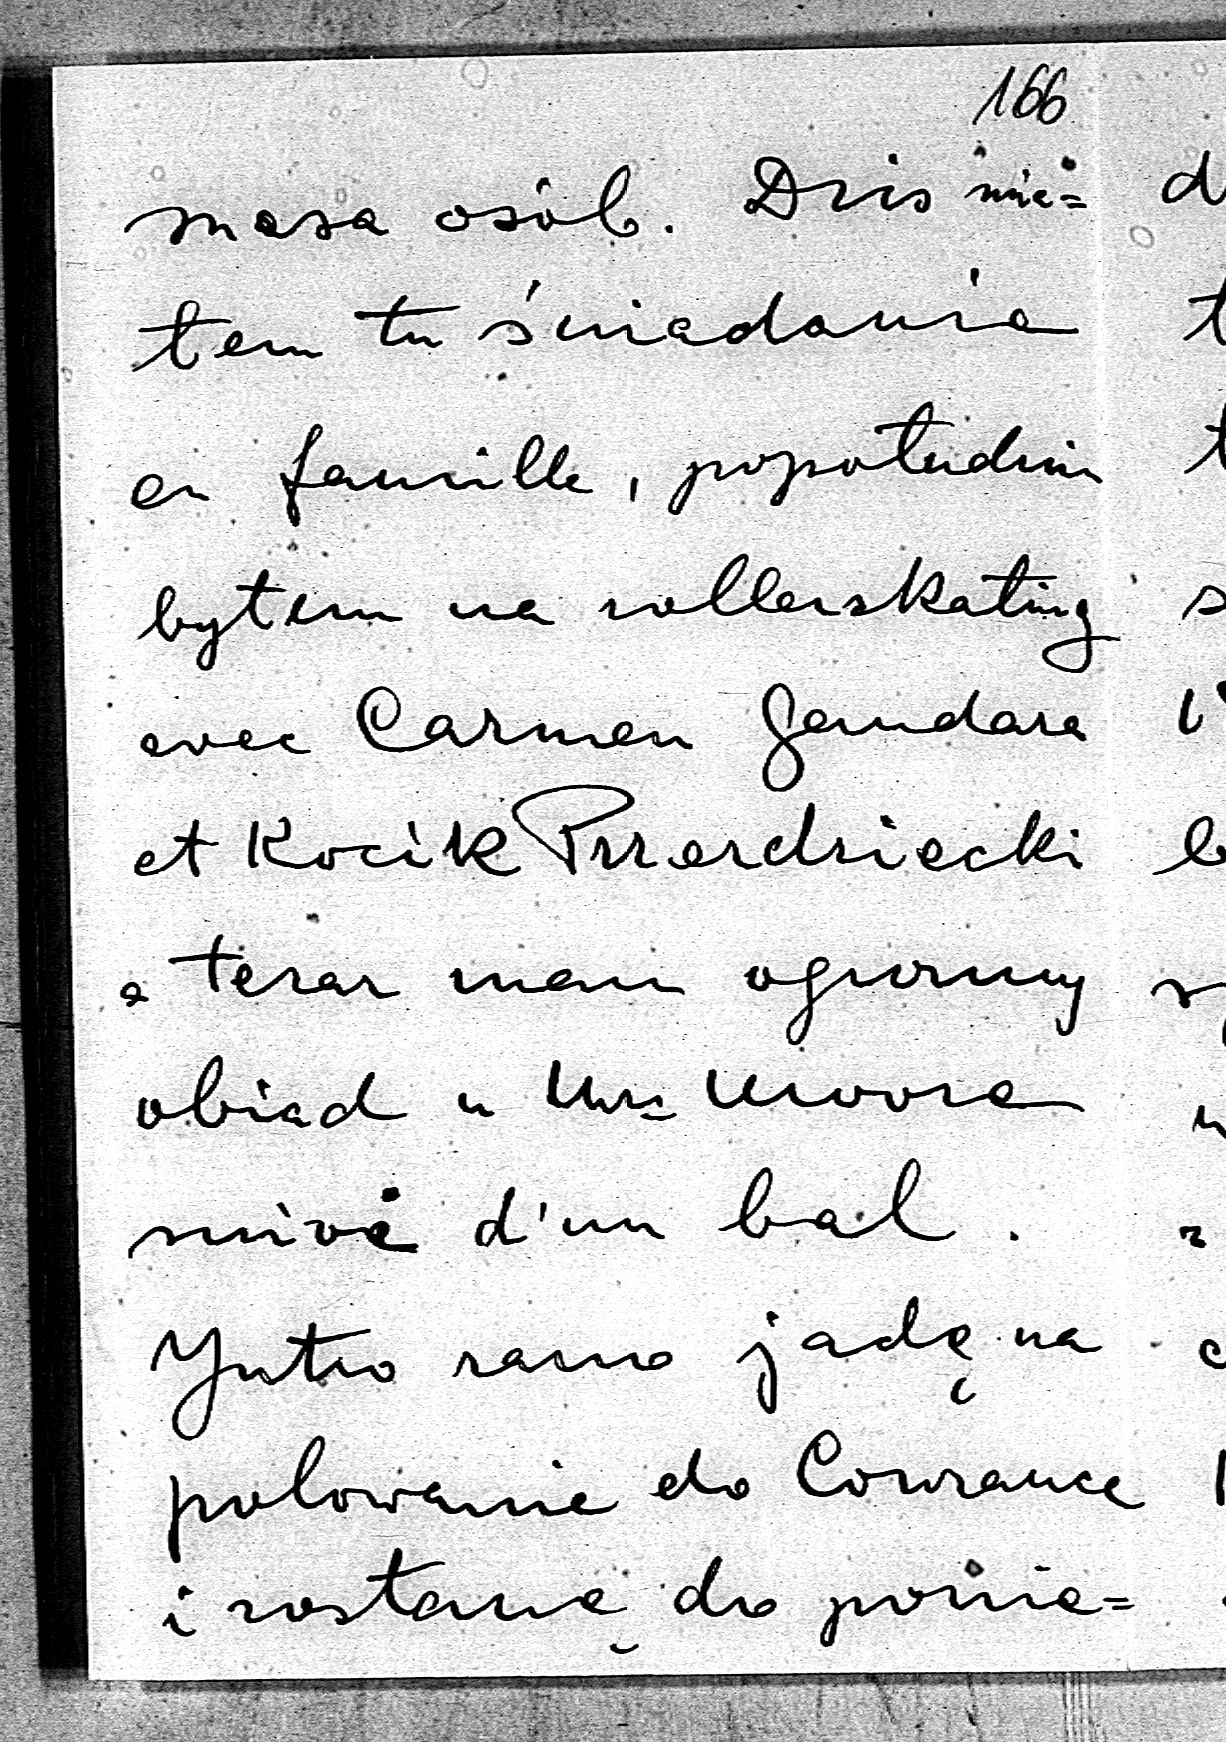 166
masa osób. Dziś mia=
łem tu śniadania
en famille, popołudniu
byłem na rollerskating
avec Carmen Gandara
et Kocik Przezdziecki
a teraz mam ogromny
obiad u Mrs Moore
suivi d'un bal.
Jutro rano jadę na
polowanie do Courance
i zostanę do ponie=